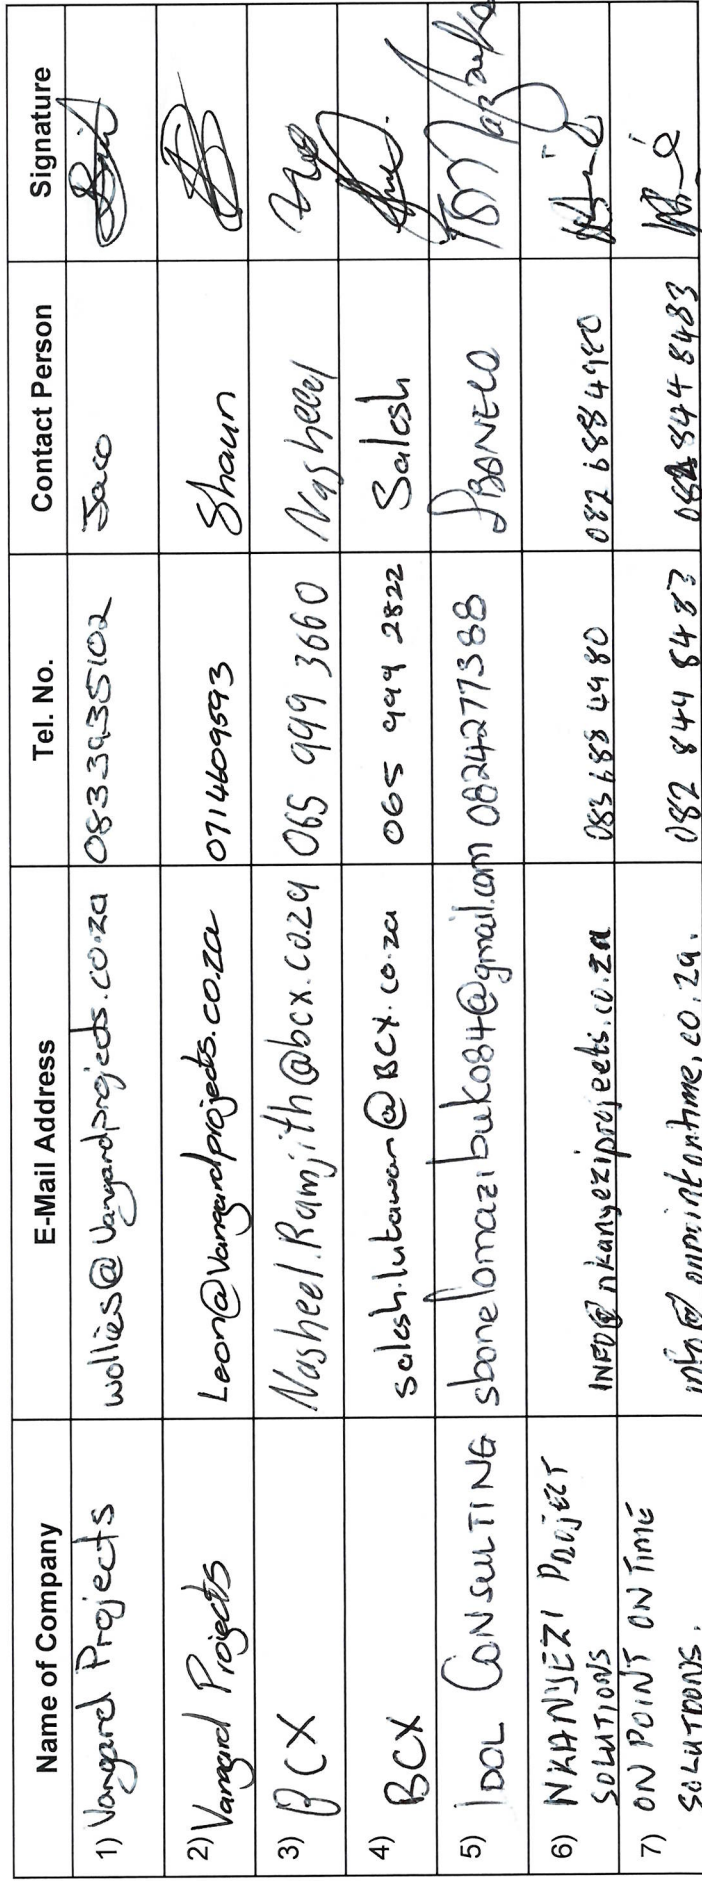 Name of Company E-Mail Address Tel. No. Contact Person Signature
1) Vangard Projects wollies@vangardprojects.co.za 0833935102 Jaco
2) Vangard Projects Leon@vangardprojects.co.za 0714609593 Shaun
3) BCX Nasheel.Ramjith@bcx.co.za 065 999 3660 Nasheel
4) BCX salesh.lutawan@BCX.co.za 065 999 2822 Salesh
5) IDOL CONSULTING sbonelomazibuko84@gmail.com 0824277388 SBONELO
6) NKANYEZI PROJECT
SOLUTIONS INFO@nkanyeziprojects.co.za 083 688 4980 082 688 4980
7) ON POINT ON TIME
SOLUTIONS. info@onpointontime.co.za. 082 844 8483 082 844 8483